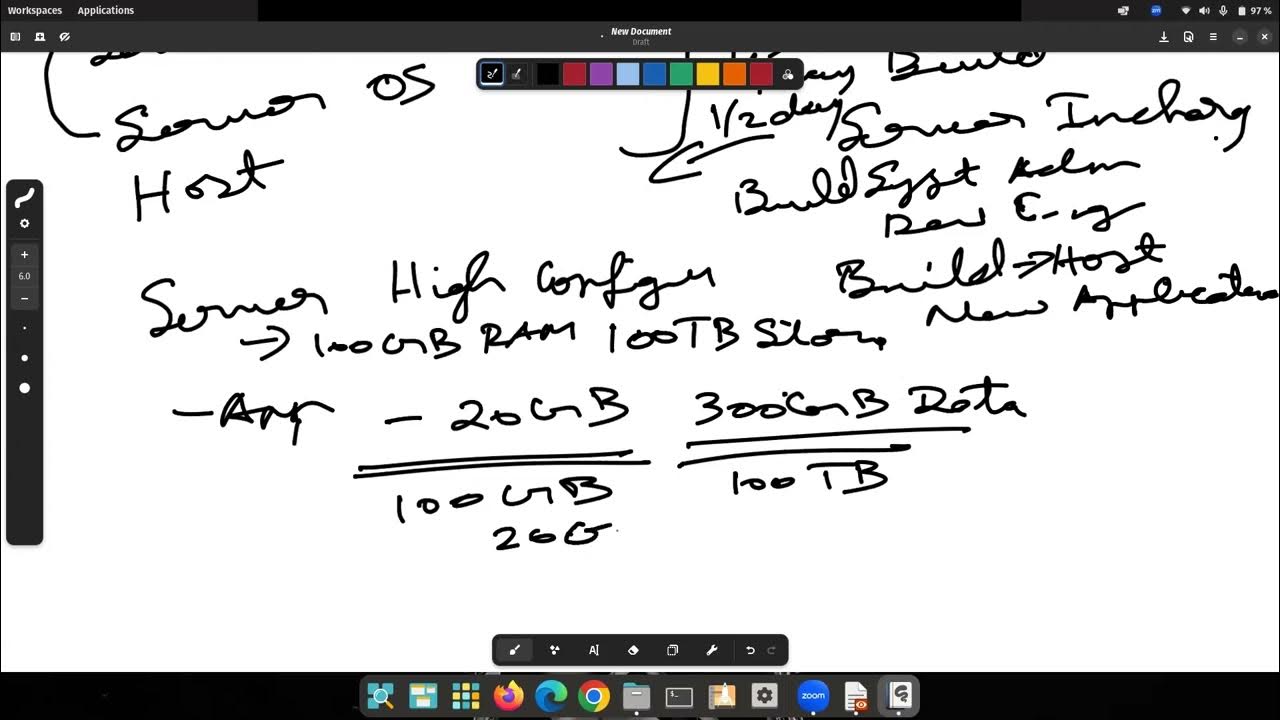 Workspaces Applications
97 %
New Document
Draft
OS
Build
1/2 day
Server
Server Incharg
Host
Build Syst Adm
Dev Eng
Server High Configur
Build → Host
New Application
→ 100GB RAM 100TB Stor
- App - 20GB 300GB Data
100GB 100TB
20G
6.0
zoom